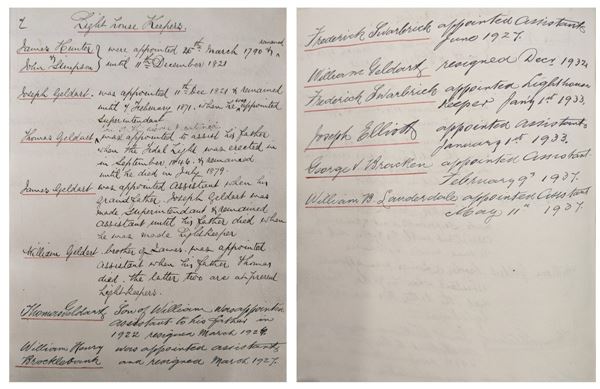 2
Light House Keepers.
James Hunter & John Stimpson } were appointed 25th March 1790 & remained
until 11th December 1821
Joseph Geldart. was appointed 11th Dec 1821 & remained
until 7 February 1871. when he was appointed
Superintendant
Thomas Geldart was appointed to assist his Father
when the Tidal Light was erected in
in September 1844. & remained
until he died in July 1879.
James Geldart was appointed Assistant when his
Grandfather Joseph Geldart was
made Superintendant & remained
Assistant until his Father died when
he was made Lightkeeper
William Geldart. brother of James. was appointed
Assistant when his Father Thomas
died. the latter two are at present
Light-Keepers.
Thomas Geldart Son of William was appointed
assistant to his father in
1922 resigned March 1924
William Henry was appointed assistant
Brocklebank and resigned March 1927.
Frederick Swarbrick appointed Assistant
June 1927.
William Geldart resigned Decr 1932.
Frederick Swarbrick appointed Lighthouse
Keeper Jany 1st 1933.
Joseph Elliott appointed Assistant
January 1st 1933.
George V Bracken appointed Assistant.
February 9th 1937.
William B. Lauderdale appointed Assistant
May 11th 1937.